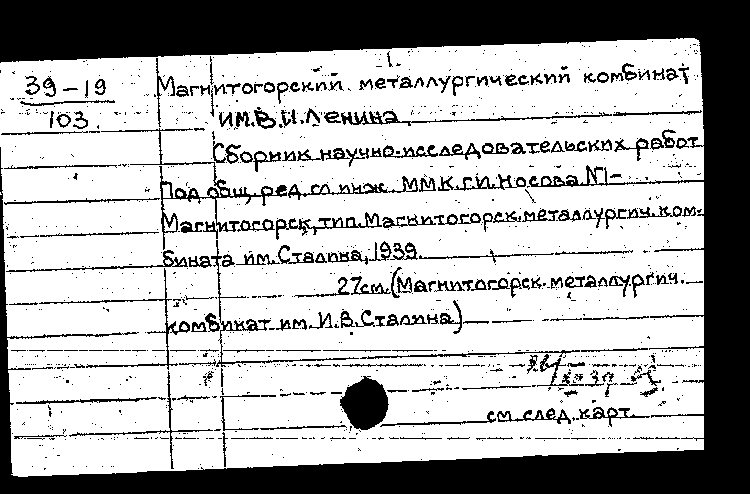 39-19
103
Магнитогорский металлургический комбинат
им. В.И. Ленина.
Сборник научно-исследовательских работ
Под общ. ред. гл. инж. ММК Г.И. Носова. №1-
Магнитогорск, тип. Магнитогорск. металлургич. ком-
бината им. Сталина, 1939.
27см. (Магнитогорск. металлургич.
комбинат им. И.В. Сталина)
см. след. карт.